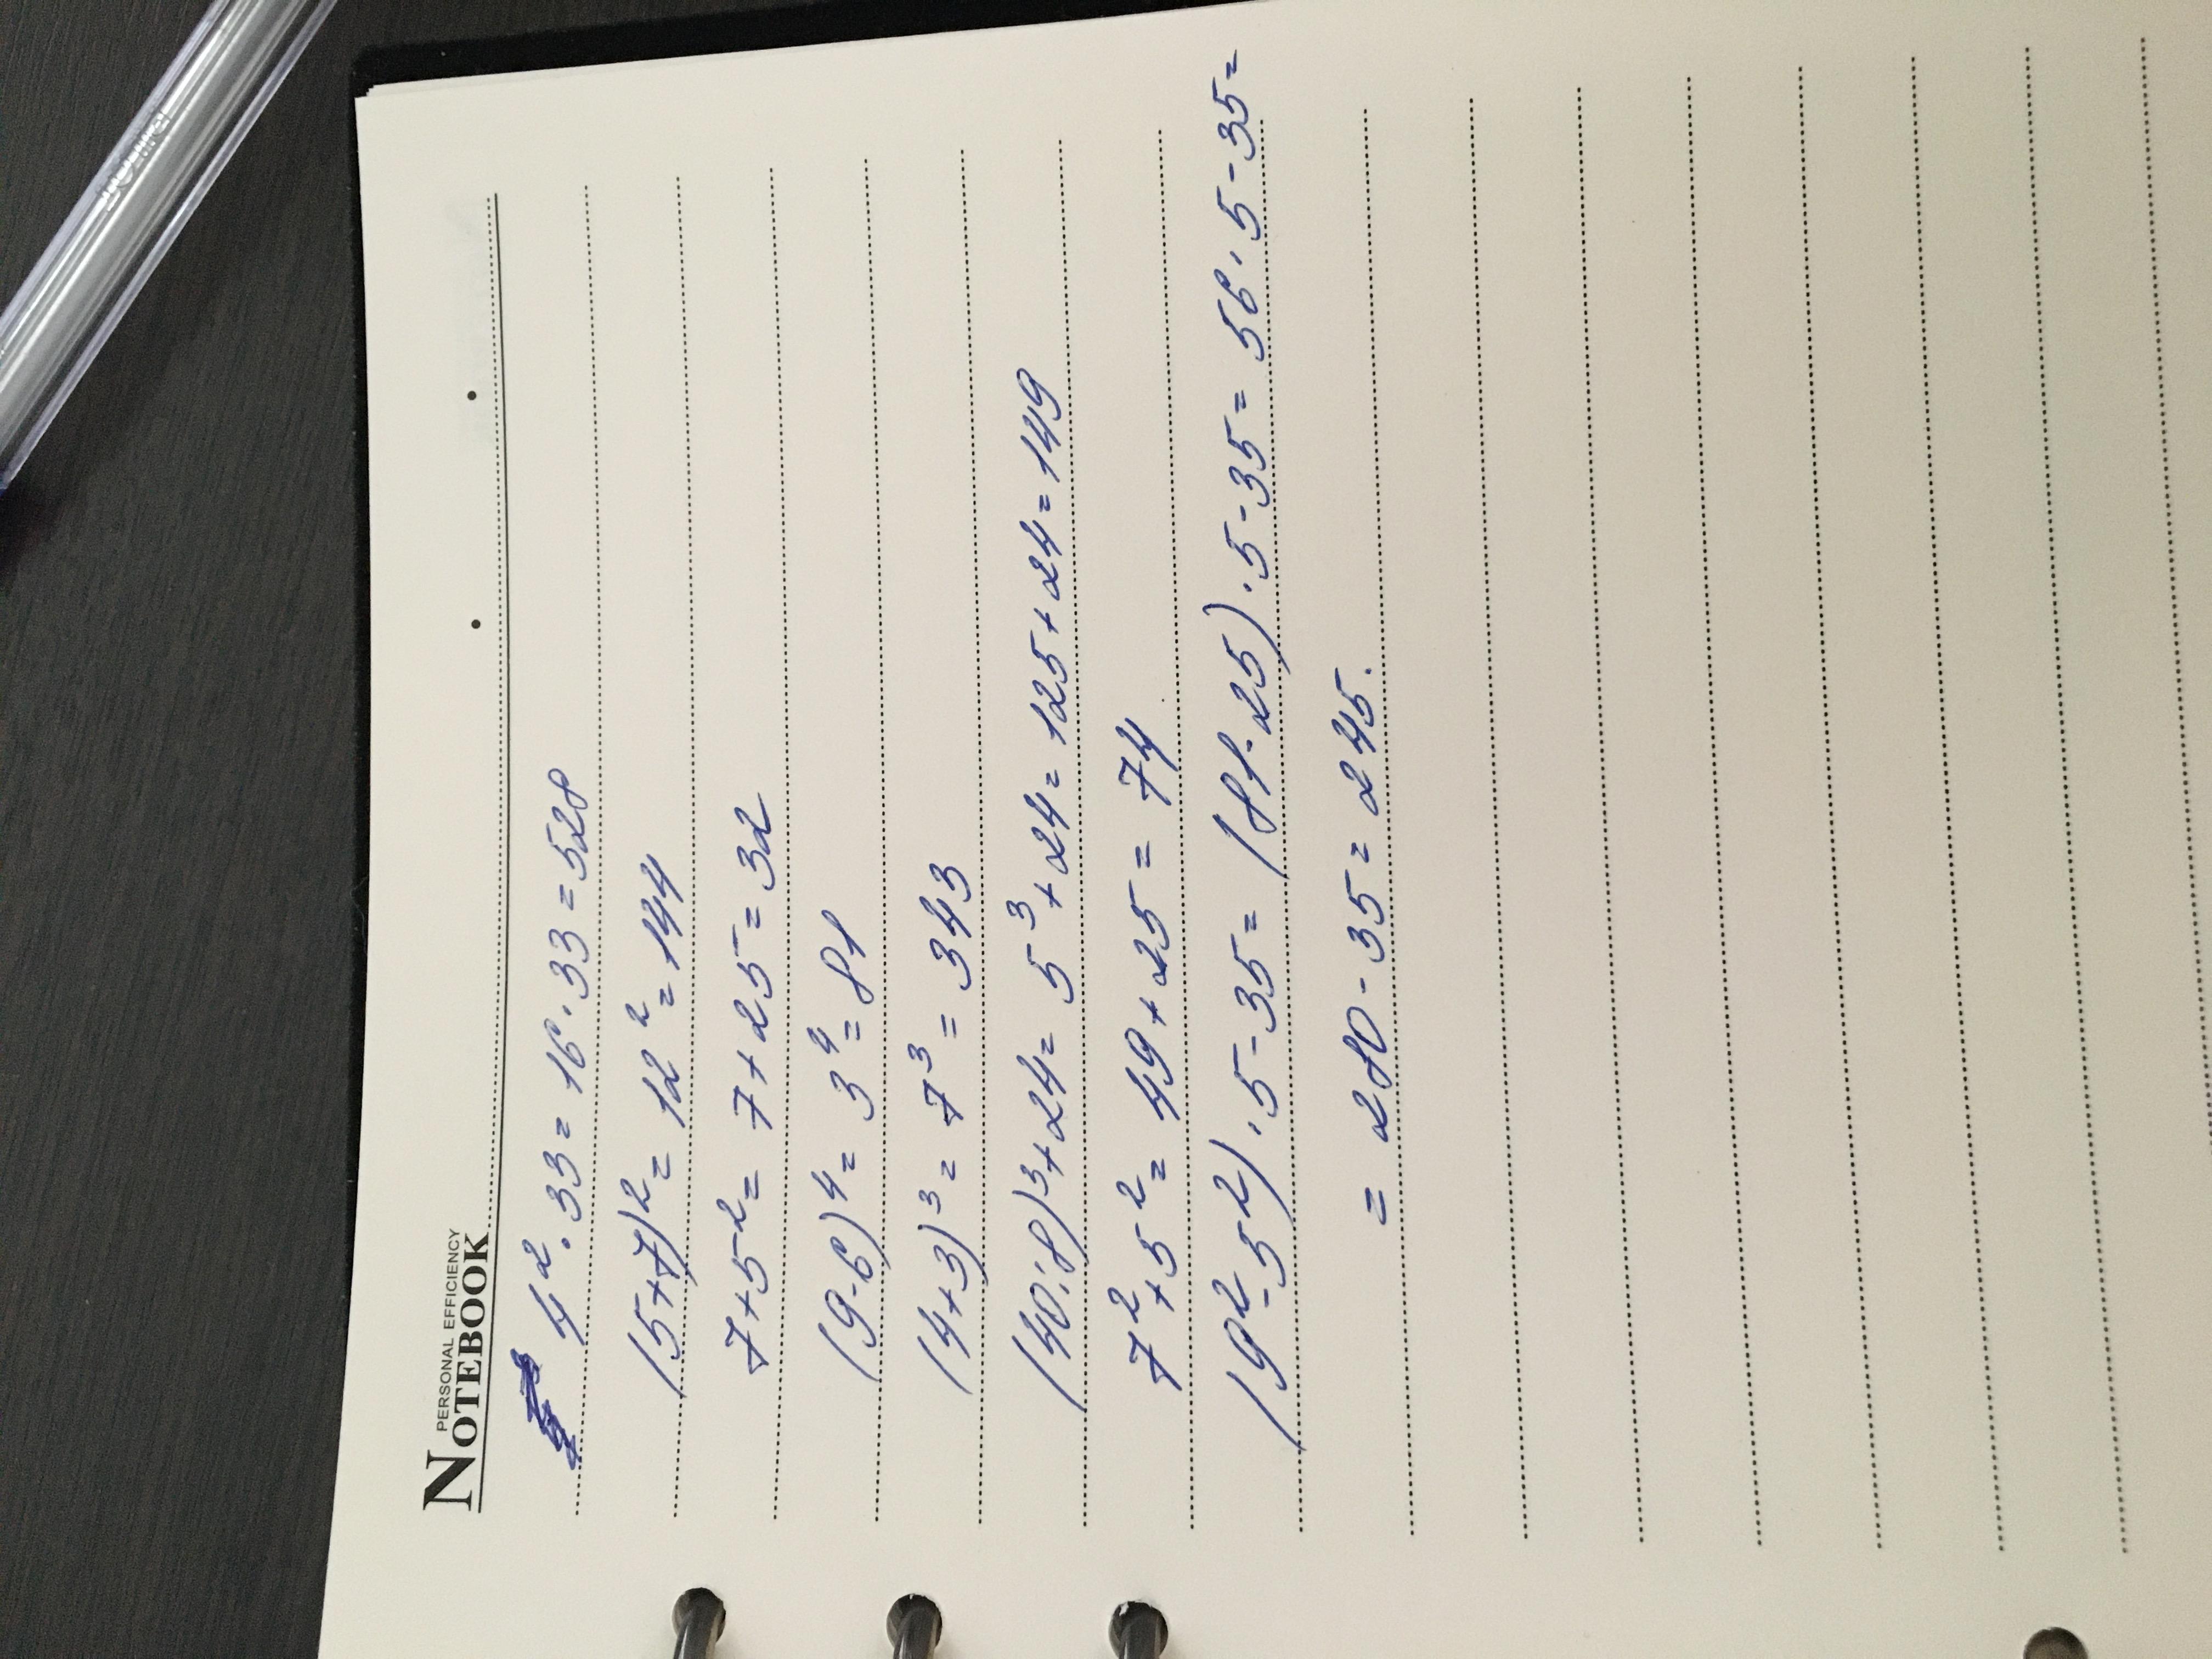 PERSONAL EFFICIENCY
NOTEBOOK
4². 33 = 16 . 33 = 528
(5+7)² = 12² = 144
7+5² = 7+25 = 32
(9-6)⁴ = 3⁴ = 81
(4+3)³ = 7³ = 343
(40:8)³+24 = 5³+24 = 125+24 = 149
7²+5² = 49+25 = 74
(9²-5²).5-35 = (81-25).5-35 = 56.5-35 =
= 280-35 = 245.